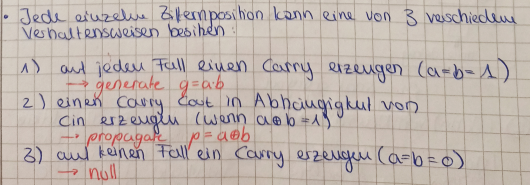 • Jede einzelne Ziffernposition kann eine von 3 verschiedenen
Verhaltensweisen besitzen:
1) auf jeden Fall einen Carry erzeugen (a=b=1)
→ generate g=a·b
2) einen Carry Out in Abhängigkeit von
Cin erzeugen (wenn a⊕b=1)
→ propagate p=a⊕b
3) auf keinen Fall ein Carry erzeugen (a=b=0)
→ null